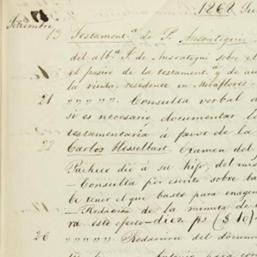 1862
Setiembre
13 Testamentª de P. Amorategui
del albª P. de Amorategui sobre el
el pasivo de la testamentª y de
la viuda, residente en Miraflores
21 " " " " " Consulta verbal
si es necesario documentar l
testamentaría á favor de la
22 Carlos Hesselbart. Examen del
Pacheco dió á su hijo, del
– Consulta por escrito sobre la
tener el que basto para enagen
– Redacción de la minuta de
ra este efecto – diez ps ($ 10) –
26 " " " " " Redacción del docum